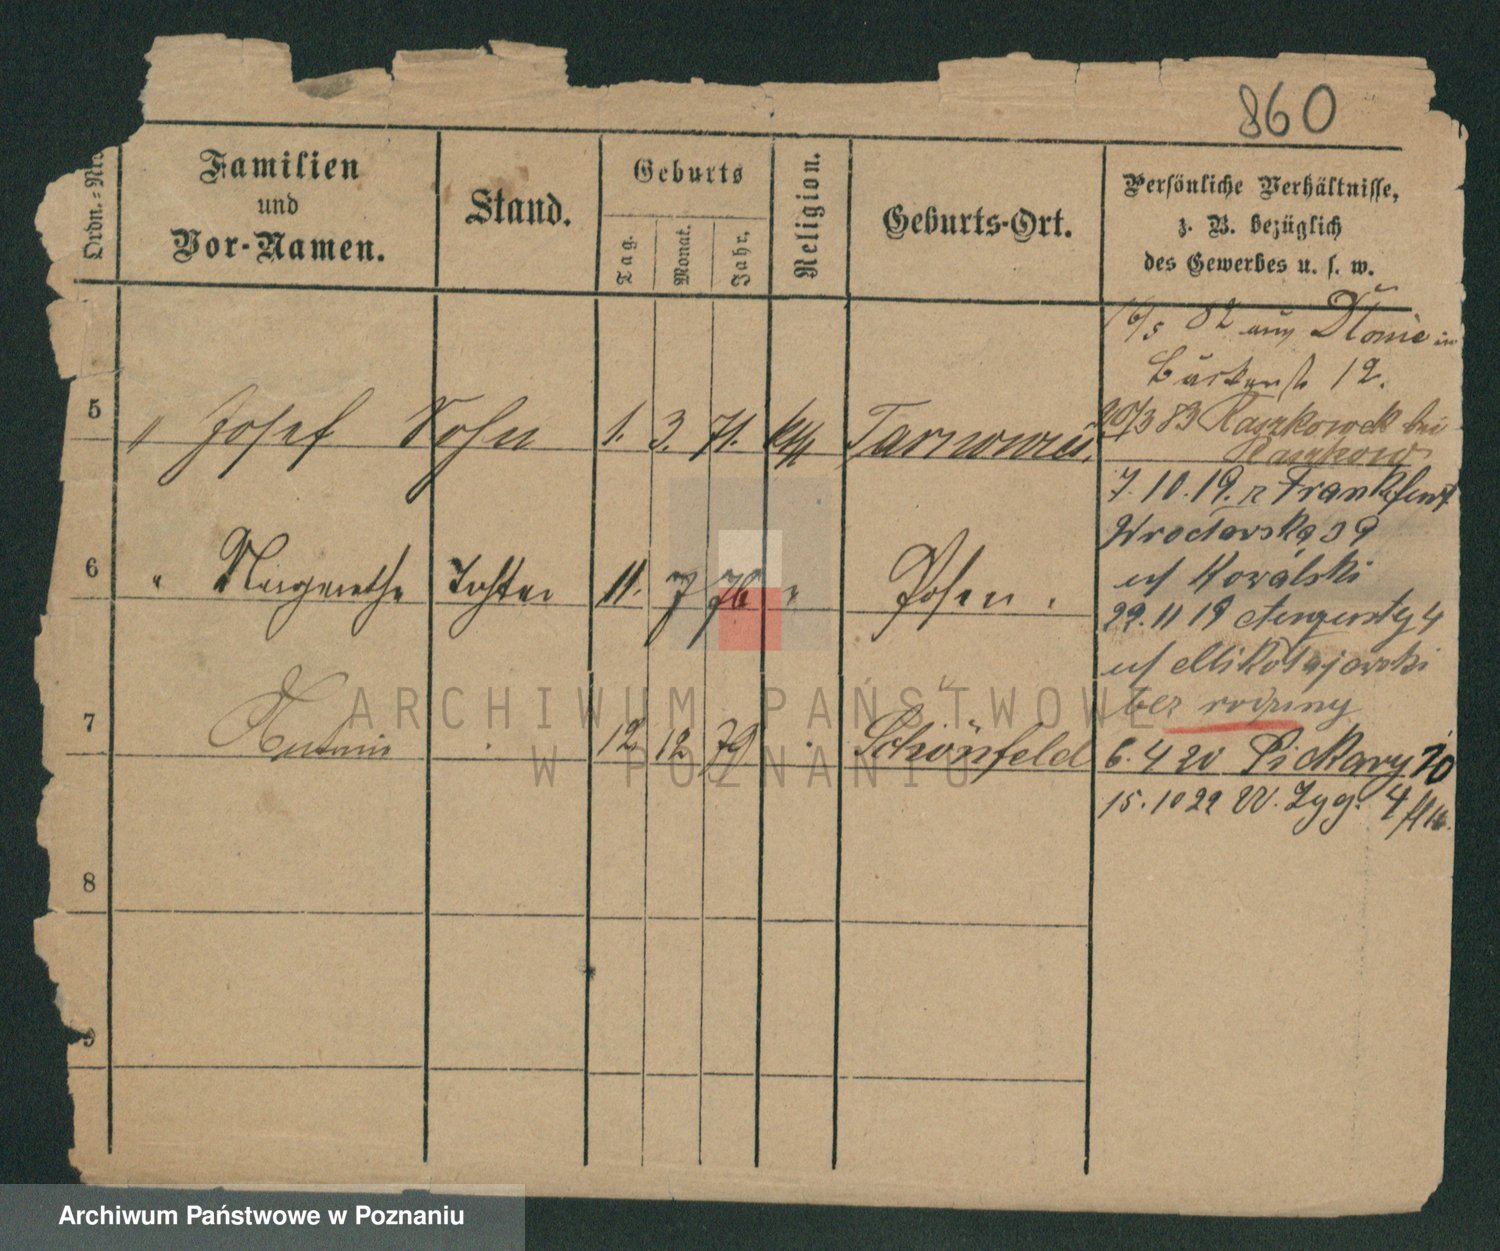 860
Ordn.=No
Familien
und
Vor-Namen.
Stand.
Geburts
Tag.
Monat.
Jahr.
Religion.
Geburts-Ort.
Persönliche Verhältnisse,
z. B. bezüglich
des Gewerbes u. s. w.
16/5 82 aus Dłonie in
12.
5 " Josef Sohn 1. 3. 71. kth
20/3 83 Raszkowek bei
Raszkow
7. 10. 19. z Frankfurt
Wrocławska 39
6 " Margarethe Tochter 11. 7 76 " Posen.
u/ Kowalski
29. 11 19 4
u/ Mikołajewski
bez rodziny
7 12 12 79 Schönfeld
6. 4 20 Piekary
15. 10 22 W. Zyg. 4
8
9
ARCHIWUM PAŃSTWOWE
W POZNANIU
Archiwum Państwowe w Poznaniu